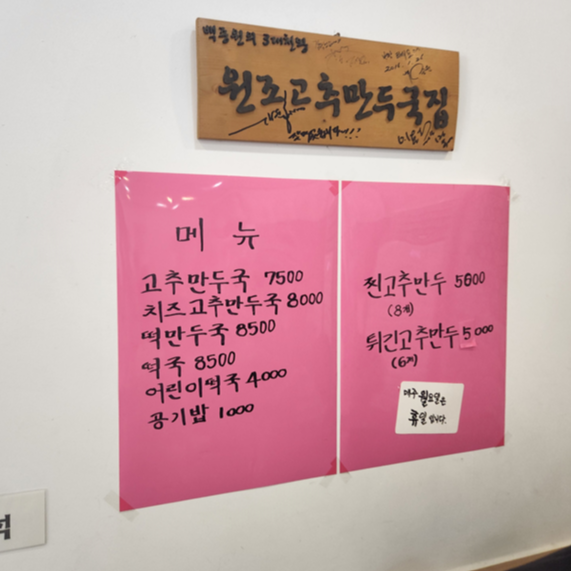 백종원의 3대천왕
원조고추만두국집
메 뉴
고추만두국 7500
치즈고추만두국 8000
떡만두국 8500
떡국 8500
어린이떡국 4000
공기밥 1000
찐고추만두 5000
(8개)
튀긴고추만두 5000
(6개)
매주 월요일은
휴일 입니다.
석